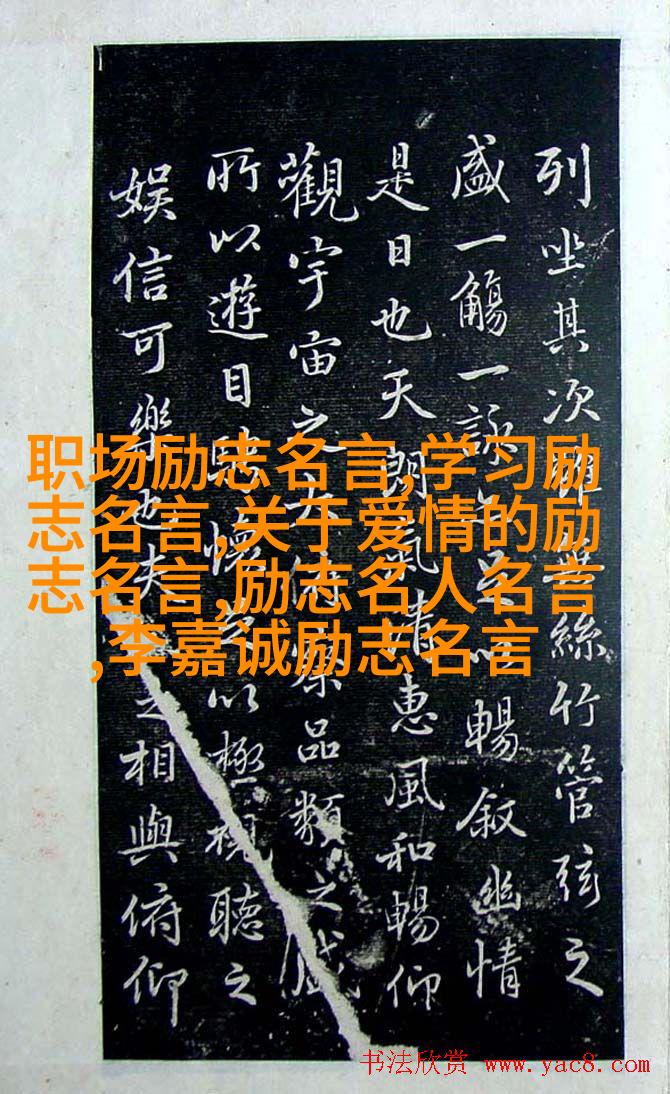 列坐其次雖無絲竹管弦之
盛一觴一詠亦足以暢敘幽情
是日也天朗氣清惠風和暢仰
觀宇宙之大俯察品類之盛
所以遊目騁懷足以極視聽之
娛信可樂也夫之相與俯仰
职场励志名言,学习励
志名言,关于爱情的励
志名言,励志名人名言
,李嘉诚励志名言
书法欣赏 www.yac8.com